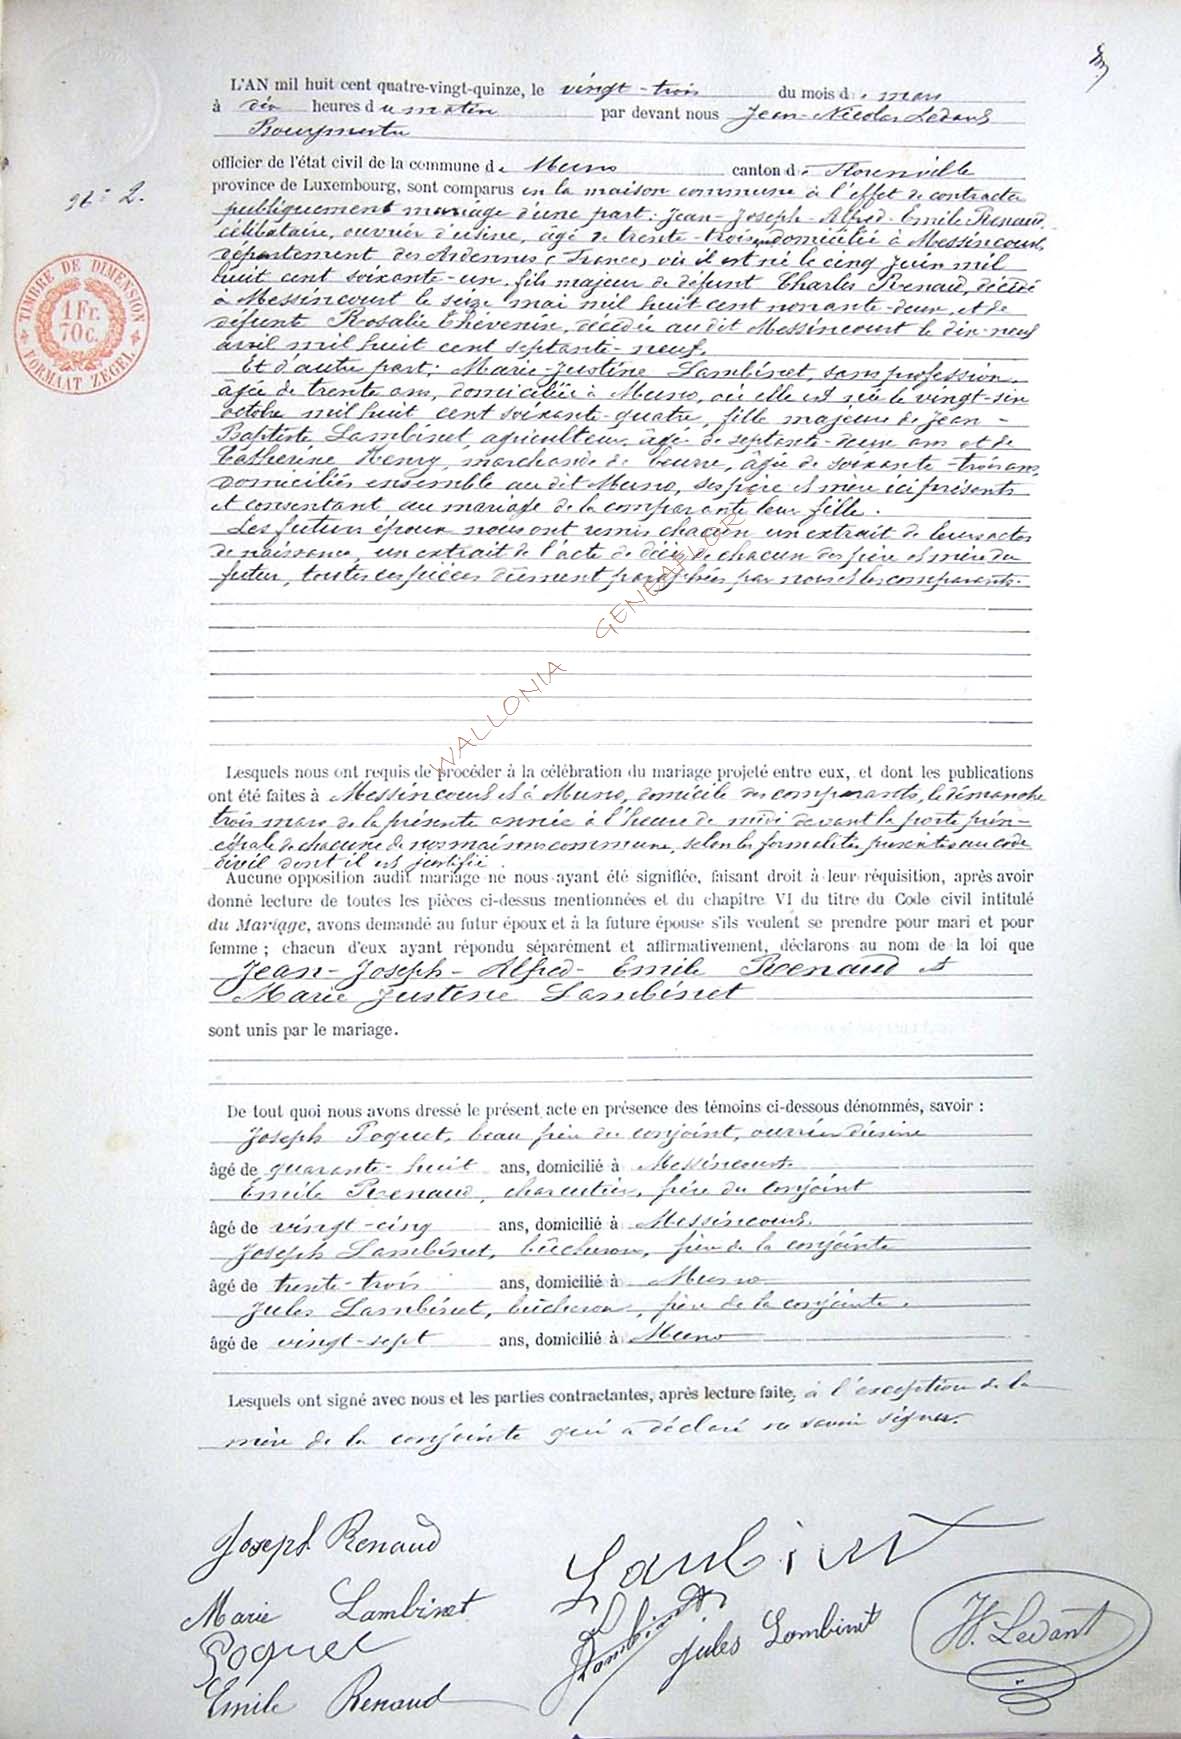 L'AN mil huit cent quatre-vingt-quinze, le vingt-trois du mois de mars
à dix heures du matin par devant nous Jean-Nicolas Ledant
Bourgmestre
officier de l'état civil de la commune de Muno canton de Florenville
province de Luxembourg, sont comparus en la maison commune à l'effet de contracter
N° 2.
publiquement mariage d'une part: Jean-Joseph-Alfred-Emile Renaud,
célibataire, ouvrier d'usine, âgé de trente-trois ans domicilié à Messincourt,
département des Ardennes (France) où il est né le cinq Juin mil
huit cent soixante-un, fils majeur de défunt Charles Renaud, décédé
à Messincourt le seize mai mil huit cent nonante-deux, et de
défunte Rosalie Thévenin, décédée au dit Messincourt le dix-neuf
avril mil huit cent septante-neuf.
Et d'autre part; Marie-Justine Lambinet, sans profession,
âgée de trente ans, domiciliée à Muno, où elle est née le vingt-six
octobre mil huit cent soixante-quatre, fille majeure de Jean-
Baptiste Lambinet, agriculteur, âgé de septante-deux ans et de
Catherine Henry, marchande de beurre, âgée de soixante-trois ans,
domiciliés ensemble au dit Muno, ses père et mère ici présents
et consentant au mariage de la comparante leur fille.
Les futurs époux nous ont remis chacun un extrait de leurs actes
de naissance, un extrait de l'acte de décès de chacun des père et mère du
futur, toutes ces pièces dûment paraphées par nous et les comparants.
WALLONIA GENEAFLOR
TIMBRE DE DIMENSION
1 Fr.
70 c.
FORMAAT ZEGEL
Lesquels nous ont requis de procéder à la célébration du mariage projeté entre eux, et dont les publications
ont été faites à Messincourt et à Muno, domicile des comparants, le dimanche
trois mars de la présente année à l'heure de midi devant la porte prin-
cipale de chacune de nos maisons commune, selon les formalités prescrites au code
civil dont il est justifié.
Aucune opposition audit mariage ne nous ayant été signifiée, faisant droit à leur réquisition, après avoir
donné lecture de toutes les pièces ci-dessus mentionnées et du chapitre VI du titre du Code civil intitulé
du Mariage, avons demandé au futur époux et à la future épouse s'ils veulent se prendre pour mari et pour
femme; chacun d'eux ayant répondu séparément et affirmativement, déclarons au nom de la loi que
Jean-Joseph-Alfred-Emile Renaud et
Marie Justine Lambinet
sont unis par le mariage.
De tout quoi nous avons dressé le présent acte en présence des témoins ci-dessous dénommés, savoir :
Joseph Poquet, beau frère du conjoint, ouvrier d'usine
âgé de quarante-huit ans, domicilié à Messincourt.
Emile Renaud, charcutier, frère du conjoint
âgé de vingt-cinq ans, domicilié à Messincourt.
Joseph Lambinet, bûcheron, frère de la conjointe
âgé de trente-trois ans, domicilié à Muno
Jules Lambinet, bûcheron, frère de la conjointe.
âgé de vingt-sept ans, domicilié à Muno
Lesquels ont signé avec nous et les parties contractantes, après lecture faite, à l'exception de la
mère de la conjointe qui a déclaré ne savoir signer.
Joseph Renaud
Lambinet
Marie Lambinet
Lambinet
Jules Lambinet
N. Ledant
Poquet
Emile Renaud